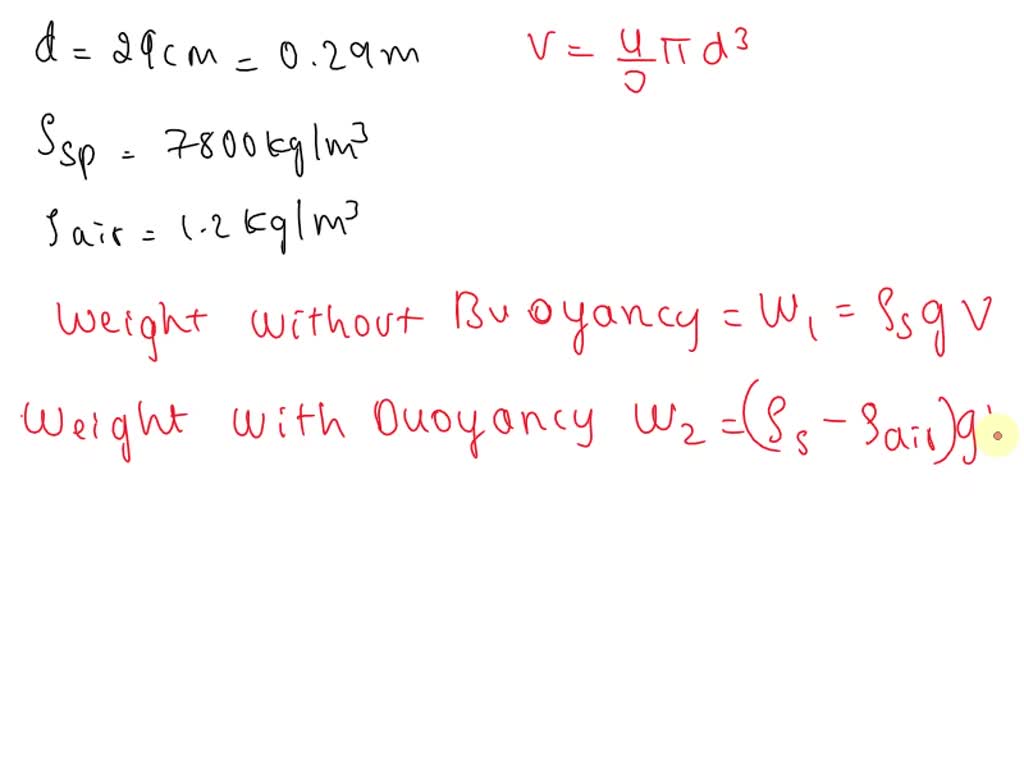 d = 29cm = 0.29m
V = 4/3 π d³
ρsp = 7800kg/m³
ρair = 1.2 kg/m³
Weight without Buoyancy = W₁ = ρs g V
Weight with Buoyancy W₂ = (ρs - ρair)g